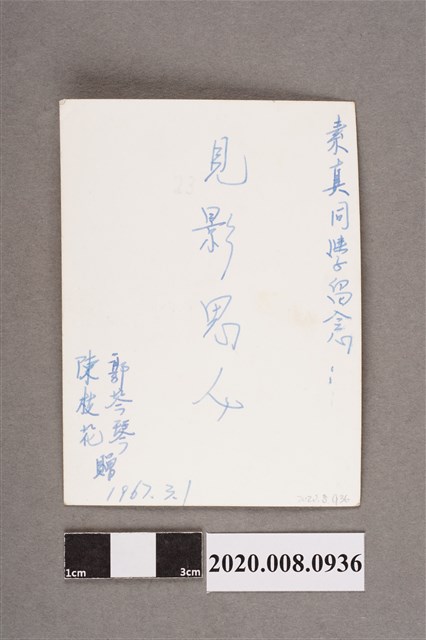 素真同學留念：
見影思人
郭芩琴
陳枝花
贈
1967.3.1
2020.8.936
1cm
3cm
2020.008.0936